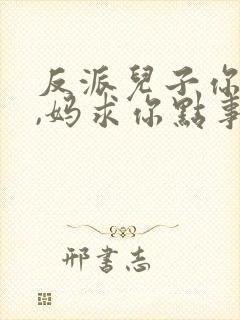 反派兒子你
,妈求你點事
邢書志